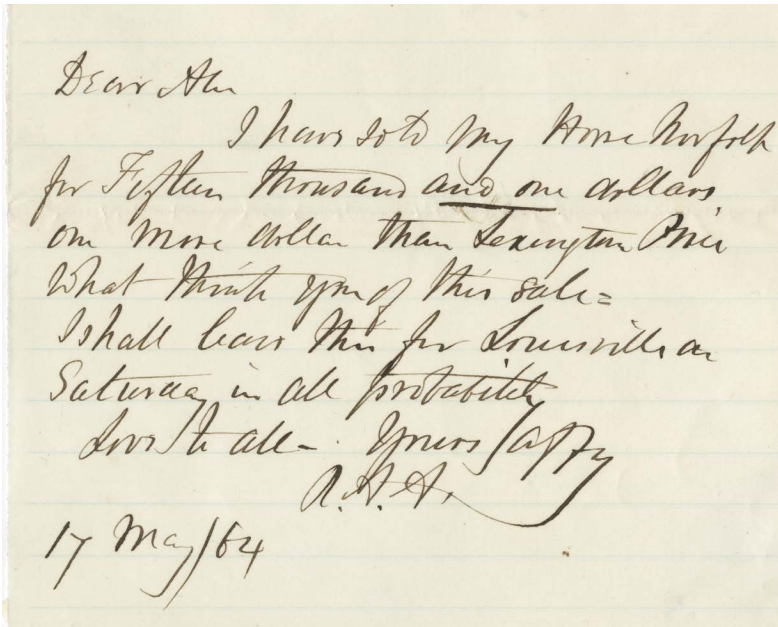 Dear Alec
I have sold my Horse Norfolk
for Fifteen thousand and one dollars
one more dollar than Lexington Price
What think you of this sale =
I shall leave this for Louisville on
Saturday in all probability
Love to all - . Yours affy
R. A. A.
17 May/64